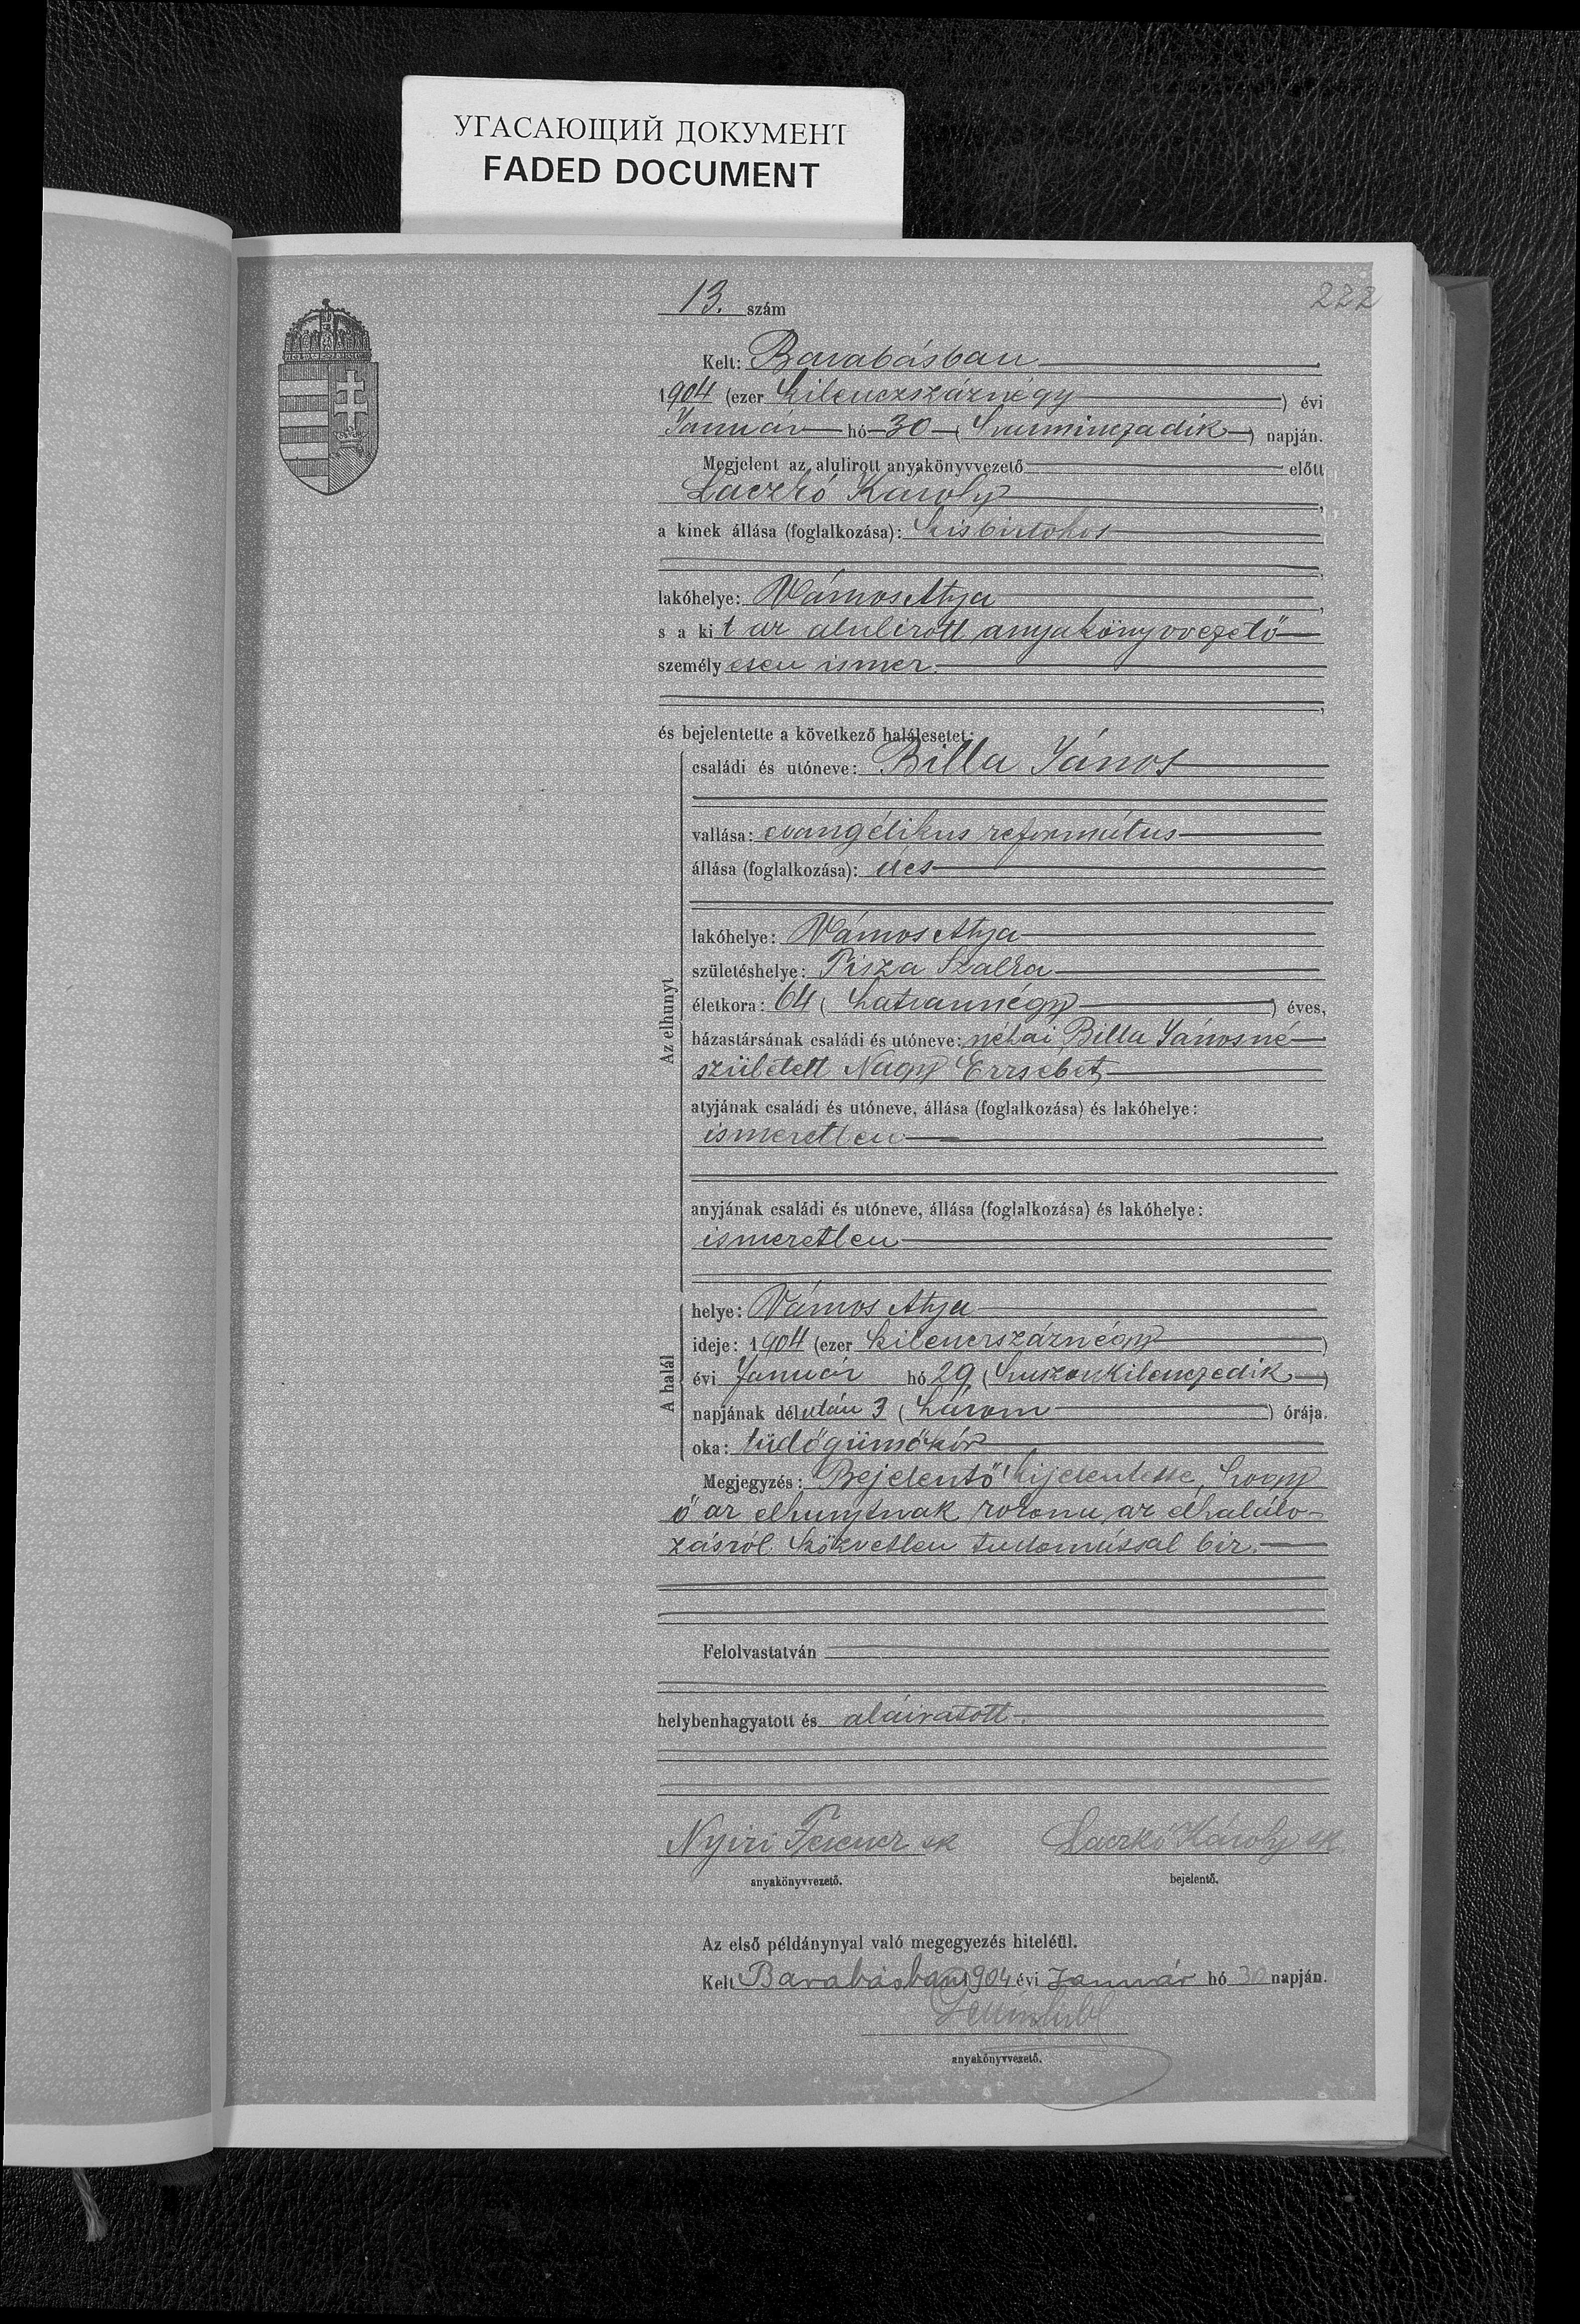 УГАСАЮЩИЙ ДОКУМЕНТ
FADED DOCUMENT
222
13. szám
Kelt: Barabásban
1904 (ezer kilenczszáznégy) évi
Január hó 30 (harminczadik) napján.
Megjelent az alulirott anyakönyvvezető előtt
Laczkó Károly,
a kinek állása (foglalkozása): kisbirtokos
lakóhelye: Vámos Atya,
s a kit az alulirott anyakönyvvezető
személyesen ismer.
és bejelentette a következő halálesetet:
Az elhunyt
családi és utóneve: Billa János
vallása: evangélikus református
állása (foglalkozása): ács
lakóhelye: Vámos Atya
születéshelye: Tisza Szalka
életkora: 64 (hatvannégy) éves,
házastársának családi és utóneve: néhai Billa Jánosné
született Nagy Erzsébet
atyjának családi és utóneve, állása (foglalkozása) és lakóhelye:
ismeretlen
anyjának családi és utóneve, állása (foglalkozása) és lakóhelye:
ismeretlen
A halál
helye: Vámos Atya
ideje: 1904 (ezer kilenczszáznégy)
évi Január hó 29 (huszonkilenczedik)
napjának délután 3 (három) órája.
oka: tüdőgümőkór
Megjegyzés: Bejelentő kijelentette, hogy
ő az elhunytnak rokona, az elhalálo-
zásról közvetlen tudomással bir.
Felolvastatván
helybenhagyatott és aláiratott.
Nyiri Ferencz sk Laczkó Károly sk
anyakönyvvezető. bejelentő.
Az első példánynyal való megegyezés hiteléül.
Kelt Barabásban 1904 évi Január hó 30 napján.
anyakönyvvezető.